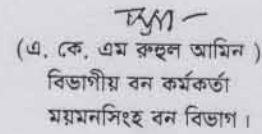 (এ, কে, এম রুহুল আমিন )
বিভাগীয় বন কর্মকর্তা
ময়মনসিংহ বন বিভাগ।